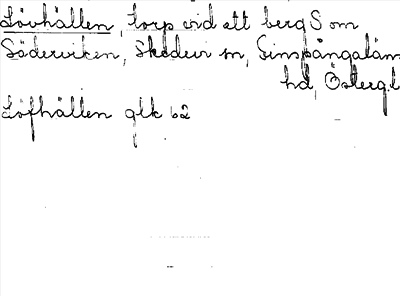 Lövhällen, torp vid ett berg S om
Söderviken, Skedevi sn, Finspångaläns
hd, Östergl.
Löfhällen glk 62